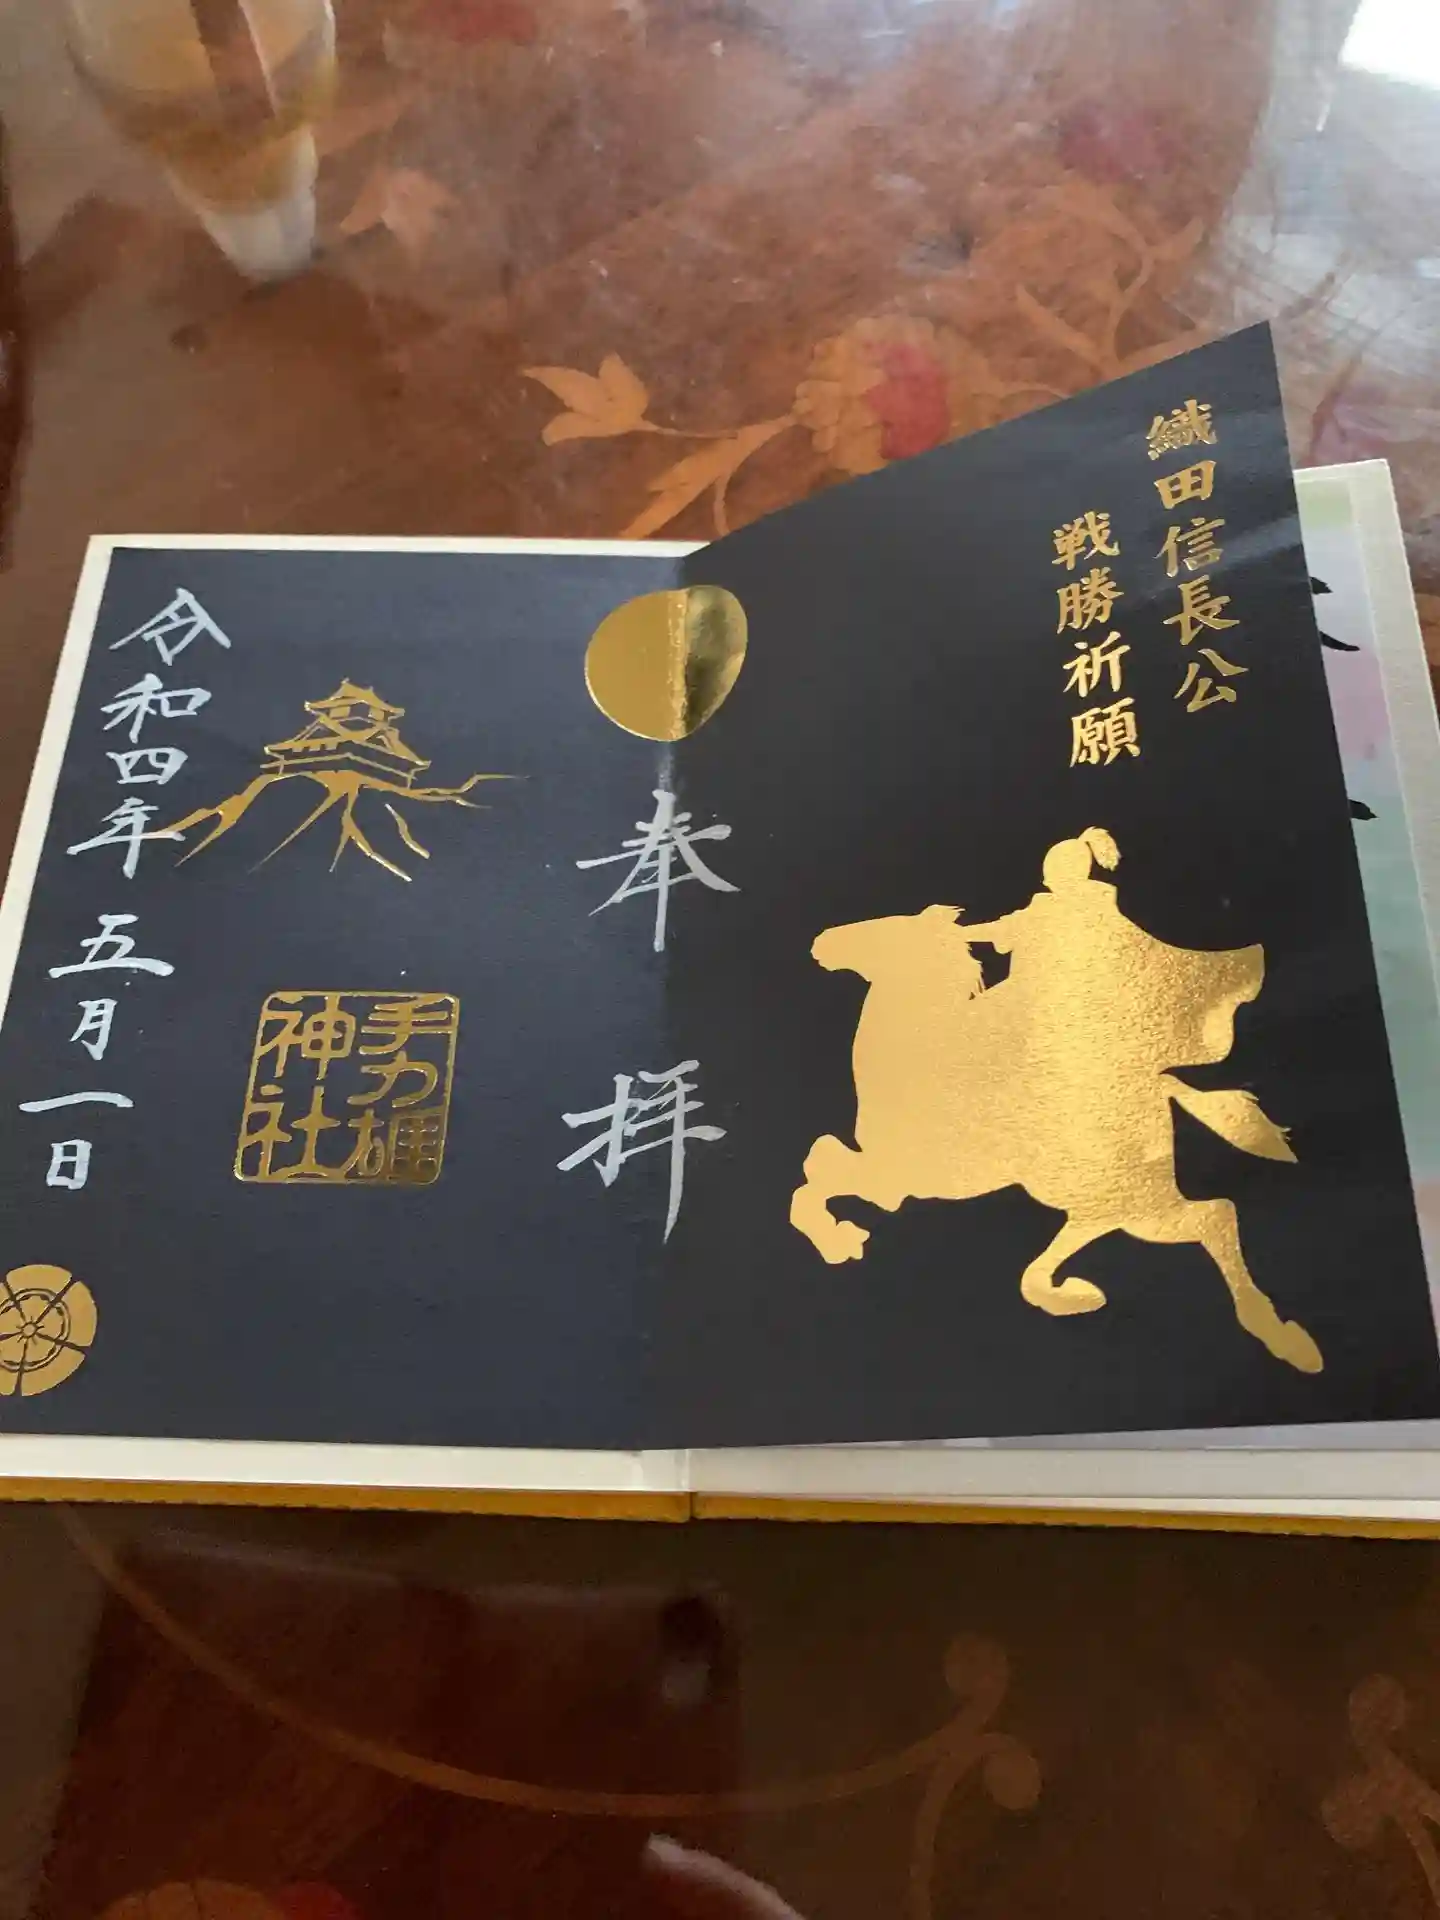 織田信長公
戦勝祈願
奉拝
手力雄
神社
令和四年五月一日